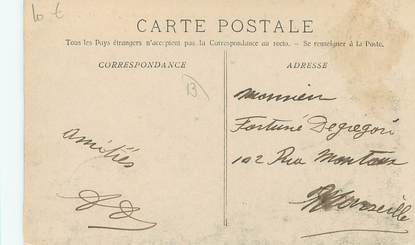 10 €
CARTE POSTALE
Tous les Pays étrangers n'acceptent pas la Correspondance au recto. — Se renseigner à la Poste.
CORRESPONDANCE
ADRESSE
B
Amitiés
Monsieur
Fortuné Degregori
102 Rue
Marseille